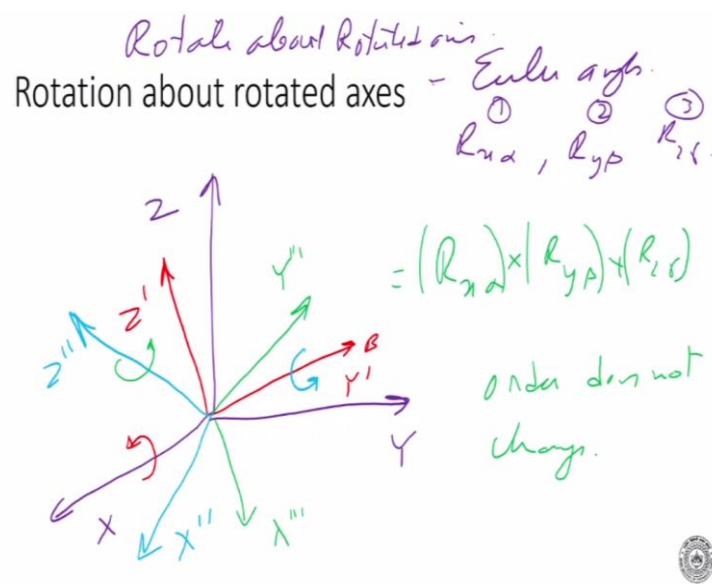 Rotate about Rotated axis.
Rotation about rotated axes - Euler angle.
① ② ③
Rxα, Ryβ Rzγ.
Z
Y'''
= (Rxα)×(Ryβ)×(Rzγ)
Z'
Z''
B
Y'
order does not
Y
change.
X
X''
X'''